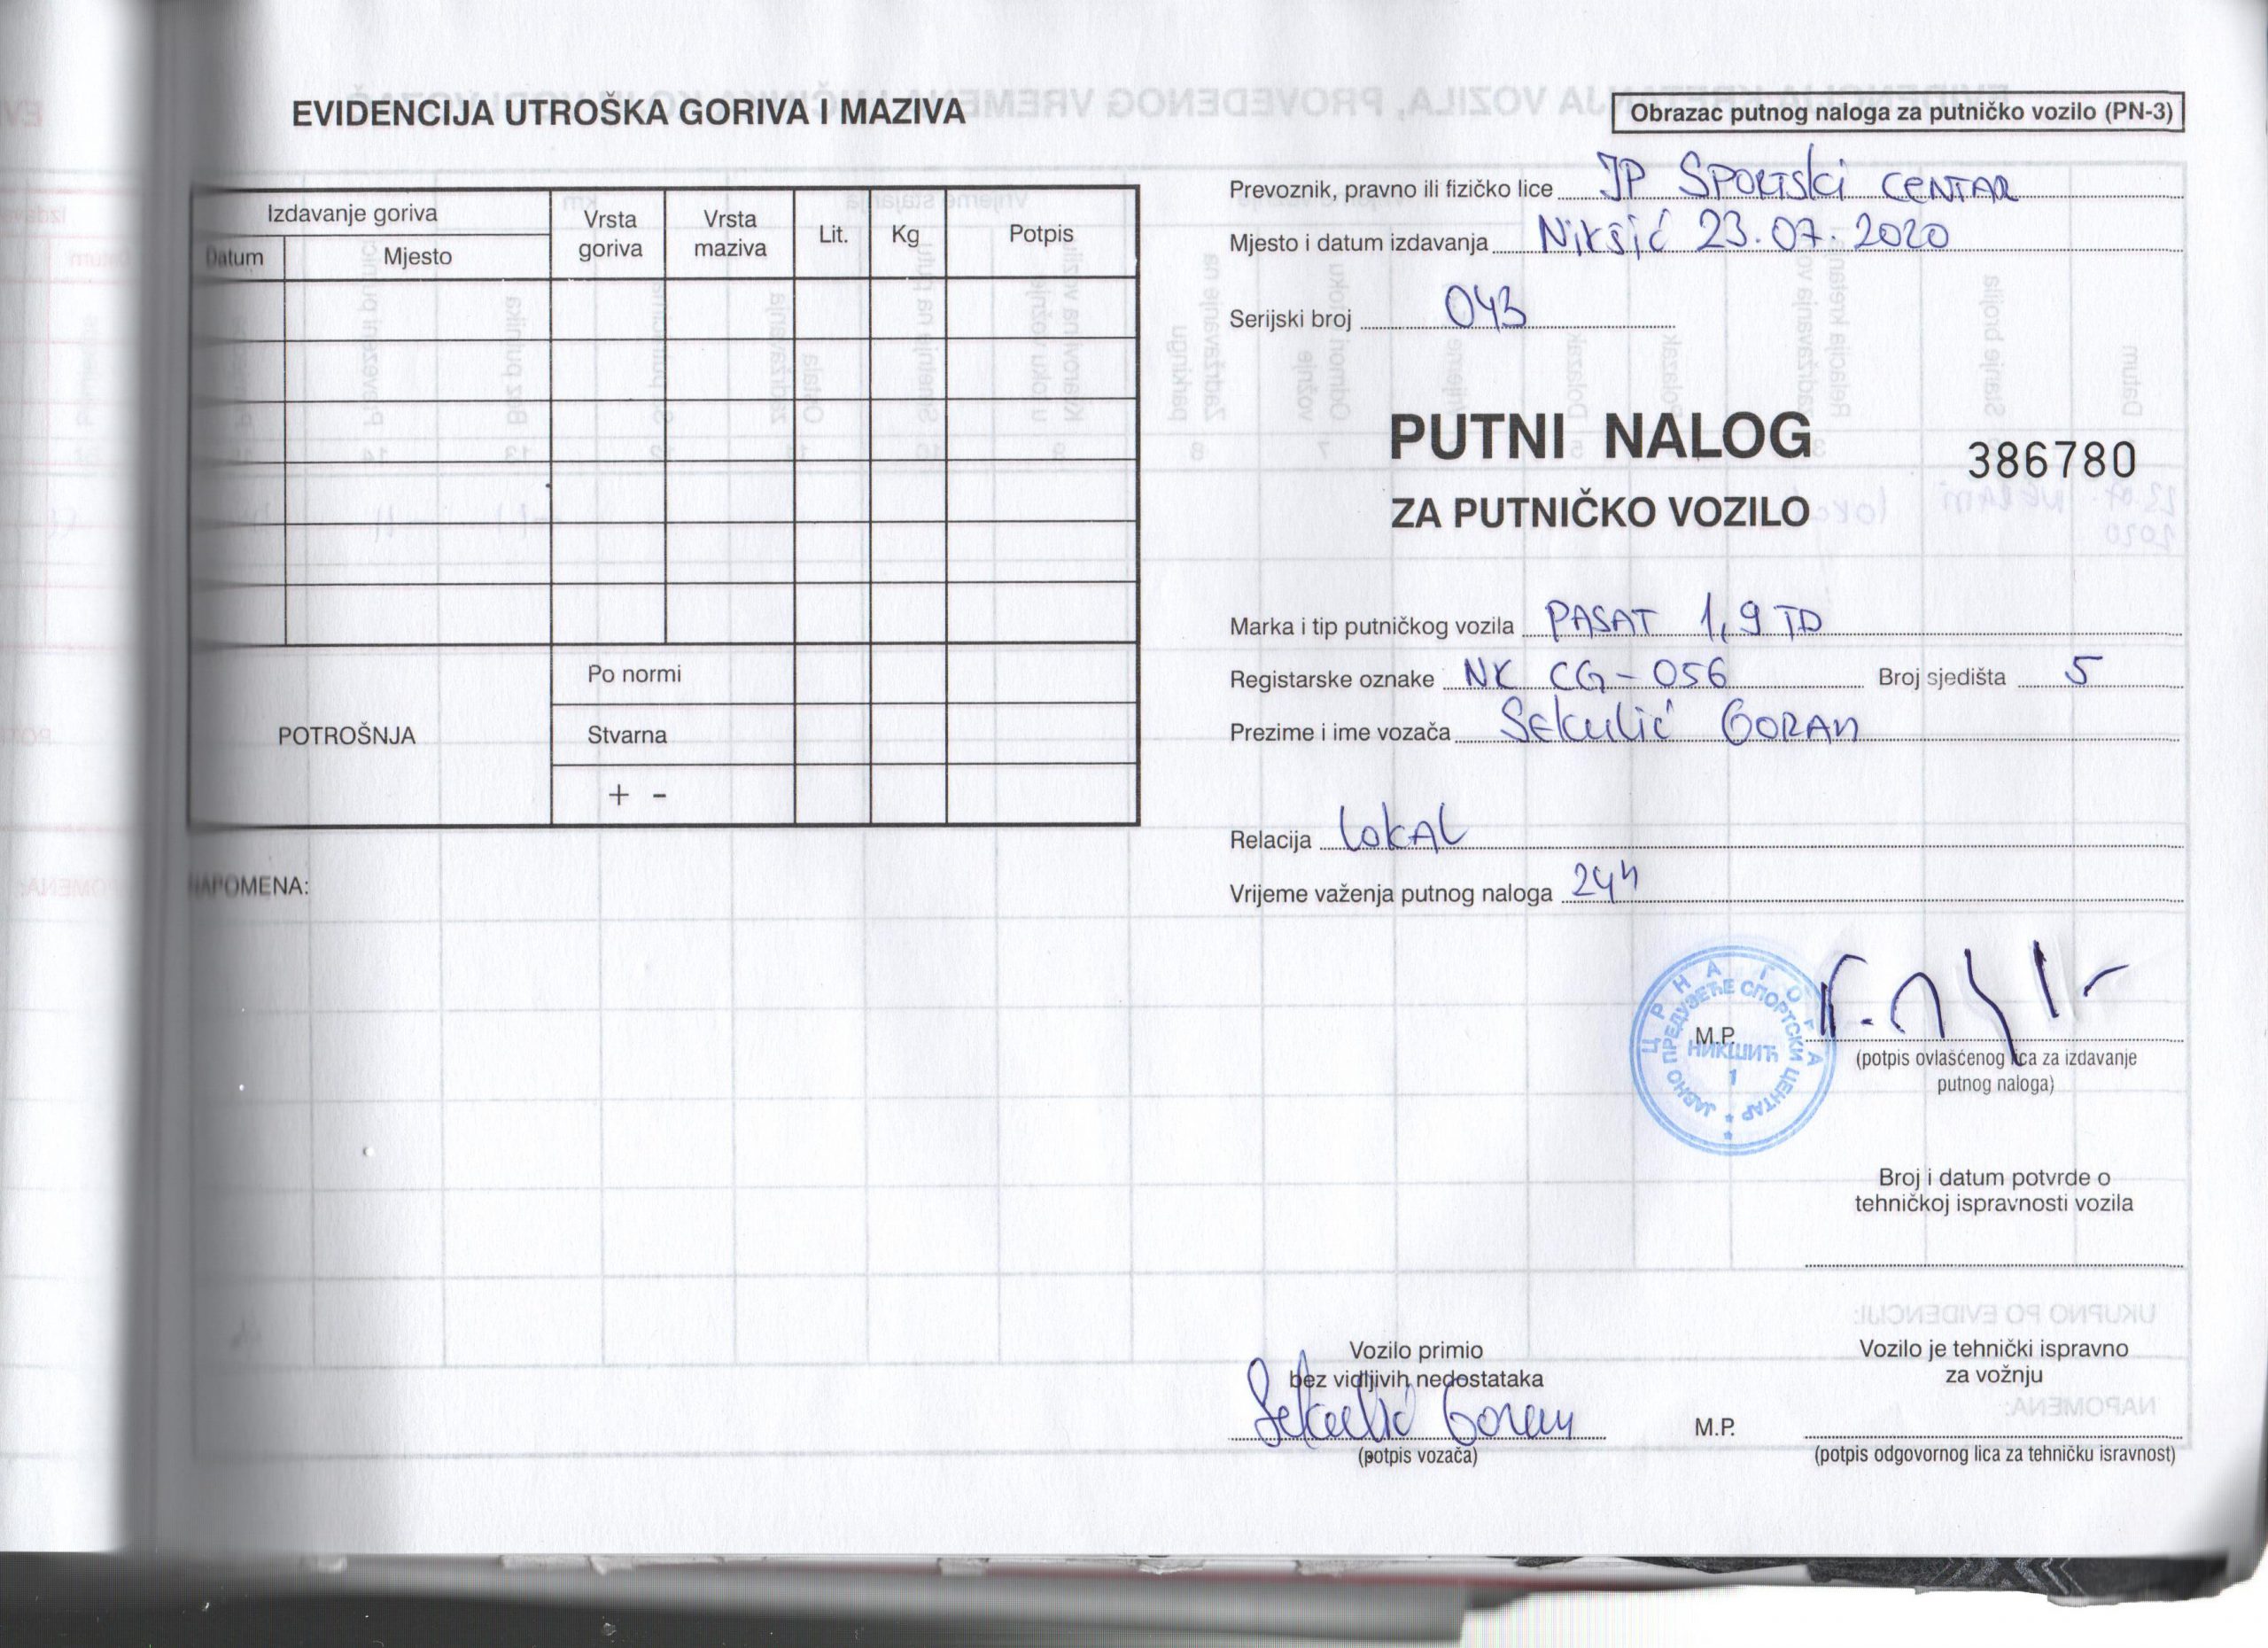 EVIDENCIJA UTROŠKA GORIVA I MAZIVA
Izdavanje goriva
Datum Mjesto
Vrsta goriva
Vrsta maziva
Lit.
Kg
Potpis
POTROŠNJA
Po normi
Stvarna
+ -
NAPOMENA:
Obrazac putnog naloga za putničko vozilo (PN-3)
Prevoznik, pravno ili fizičko lice JP SPORTSKI CENTAR
Mjesto i datum izdavanja Nikšić 23.07.2020
Serijski broj 043
PUTNI NALOG
386780
ZA PUTNIČKO VOZILO
Marka i tip putničkog vozila PASAT 1,9 TD
Registarske oznake NK CG-056 Broj sjedišta 5
Prezime i ime vozača Sekulić GORAN
Relacija LOKAL
Vrijeme važenja putnog naloga 24h
ЦРНА ГОРА
ЈАВНО ПРЕДУЗЕЋЕ СПОРТСКИ ЦЕНТАР
НИКШИЋ
1
M.P.
(potpis ovlašćenog lica za izdavanje
putnog naloga)
Broj i datum potvrde o
tehničkoj ispravnosti vozila
Vozilo primio
bez vidljivih nedostataka
Sekulić Goran
(potpis vozača)
M.P.
Vozilo je tehnički ispravno
za vožnju
(potpis odgovornog lica za tehničku isravnost)